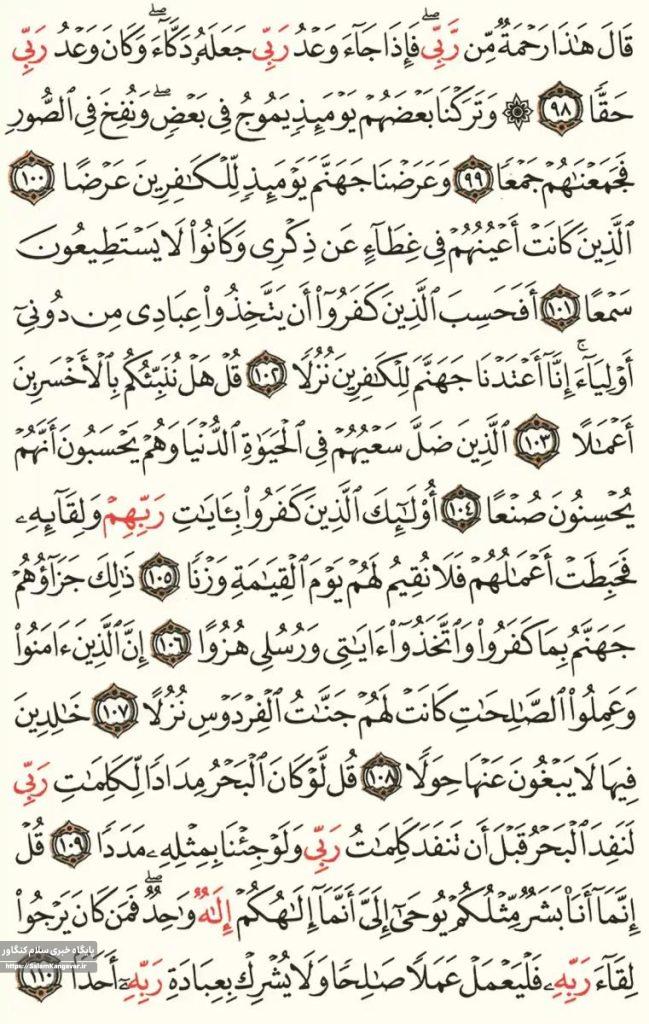 قَالَ هَٰذَا رَحۡمَةٞ مِّن رَّبِّيۖ فَإِذَا جَآءَ وَعۡدُ رَبِّي جَعَلَهُۥ دَكَّآءَۖ وَكَانَ وَعۡدُ رَبِّي
حَقّٗا ٩٨ ۞ وَتَرَكۡنَا بَعۡضَهُمۡ يَوۡمَئِذٖ يَمُوجُ فِي بَعۡضٖۖ وَنُفِخَ فِي ٱلصُّورِ
فَجَمَعۡنَٰهُمۡ جَمۡعٗا ٩٩ وَعَرَضۡنَا جَهَنَّمَ يَوۡمَئِذٖ لِّلۡكَٰفِرِينَ عَرۡضًا ١٠٠
ٱلَّذِينَ كَانَتۡ أَعۡيُنُهُمۡ فِي غِطَآءٍ عَن ذِكۡرِي وَكَانُواْ لَا يَسۡتَطِيعُونَ
سَمۡعًا ١٠١ أَفَحَسِبَ ٱلَّذِينَ كَفَرُوٓاْ أَن يَتَّخِذُواْ عِبَادِي مِن دُونِيٓ
أَوۡلِيَآءَۚ إِنَّآ أَعۡتَدۡنَا جَهَنَّمَ لِلۡكَٰفِرِينَ نُزُلٗا ١٠٢ قُلۡ هَلۡ نُنَبِّئُكُم بِٱلۡأَخۡسَرِينَ
أَعۡمَٰلًا ١٠٣ ٱلَّذِينَ ضَلَّ سَعۡيُهُمۡ فِي ٱلۡحَيَوٰةِ ٱلدُّنۡيَا وَهُمۡ يَحۡسَبُونَ أَنَّهُمۡ
يُحۡسِنُونَ صُنۡعًا ١٠٤ أُوْلَٰٓئِكَ ٱلَّذِينَ كَفَرُواْ بِـَٔايَٰتِ رَبِّهِمۡ وَلِقَآئِهِۦ
فَحَبِطَتۡ أَعۡمَٰلُهُمۡ فَلَا نُقِيمُ لَهُمۡ يَوۡمَ ٱلۡقِيَٰمَةِ وَزۡنٗا ١٠٥ ذَٰلِكَ جَزَآؤُهُمۡ
جَهَنَّمُ بِمَا كَفَرُواْ وَٱتَّخَذُوٓاْ ءَايَٰتِي وَرُسُلِي هُزُوًا ١٠٦ إِنَّ ٱلَّذِينَ ءَامَنُواْ
وَعَمِلُواْ ٱلصَّٰلِحَٰتِ كَانَتۡ لَهُمۡ جَنَّٰتُ ٱلۡفِرۡدَوۡسِ نُزُلًا ١٠٧ خَٰلِدِينَ
فِيهَا لَا يَبۡغُونَ عَنۡهَا حِوَلٗا ١٠٨ قُل لَّوۡ كَانَ ٱلۡبَحۡرُ مِدَادٗا لِّكَلِمَٰتِ رَبِّي
لَنَفِدَ ٱلۡبَحۡرُ قَبۡلَ أَن تَنفَدَ كَلِمَٰتُ رَبِّي وَلَوۡ جِئۡنَا بِمِثۡلِهِۦ مَدَدٗا ١٠٩ قُلۡ
إِنَّمَآ أَنَا۠ بَشَرٞ مِّثۡلُكُمۡ يُوحَىٰٓ إِلَيَّ أَنَّمَآ إِلَٰهُكُمۡ إِلَٰهٞ وَٰحِدٞۖ فَمَن كَانَ يَرۡجُواْ
لِقَآءَ رَبِّهِۦ فَلۡيَعۡمَلۡ عَمَلٗا صَٰلِحٗا وَلَا يُشۡرِكۡ بِعِبَادَةِ رَبِّهِۦٓ أَحَدَۢا ١١٠
پایگاه خبری سلام کنگاور
https://SalamKangavar.ir